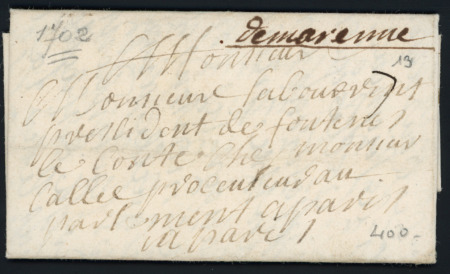 1702
demarenne
Monsieur
Monsieur Sabourin
president de fontenes
le Conte Che monsieur
Callee procureur au
parlement a paris
a paris
19
400-